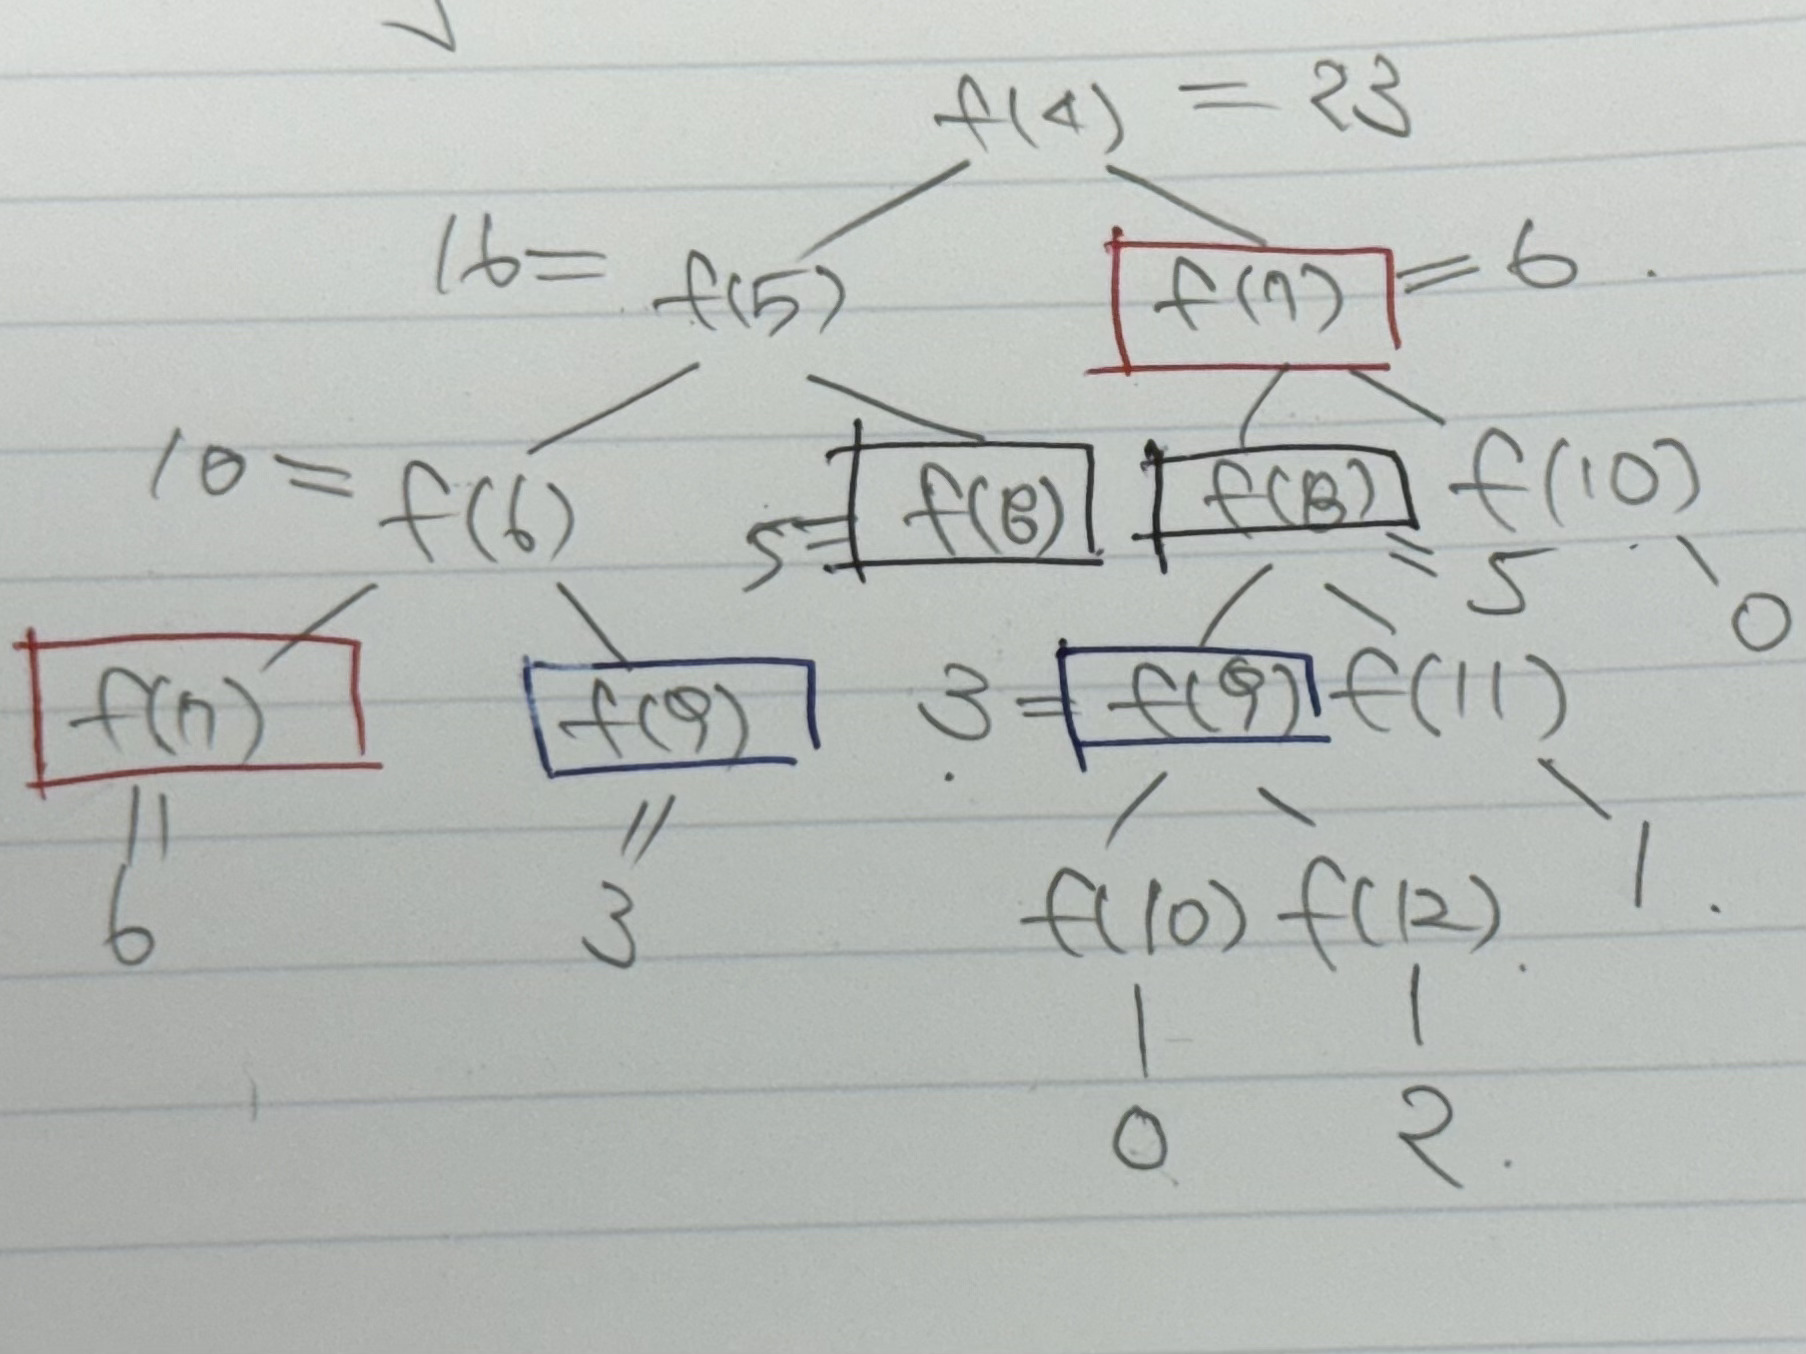 f(4) = 23
16 = f(5) f(7) = 6 .
10 = f(6) 5 = f(8) f(8) = 5 f(10) 0
f(7) f(9) 3 = f(9) f(11)
= 6 = 3 f(10) f(12) 1 .
0 2 .